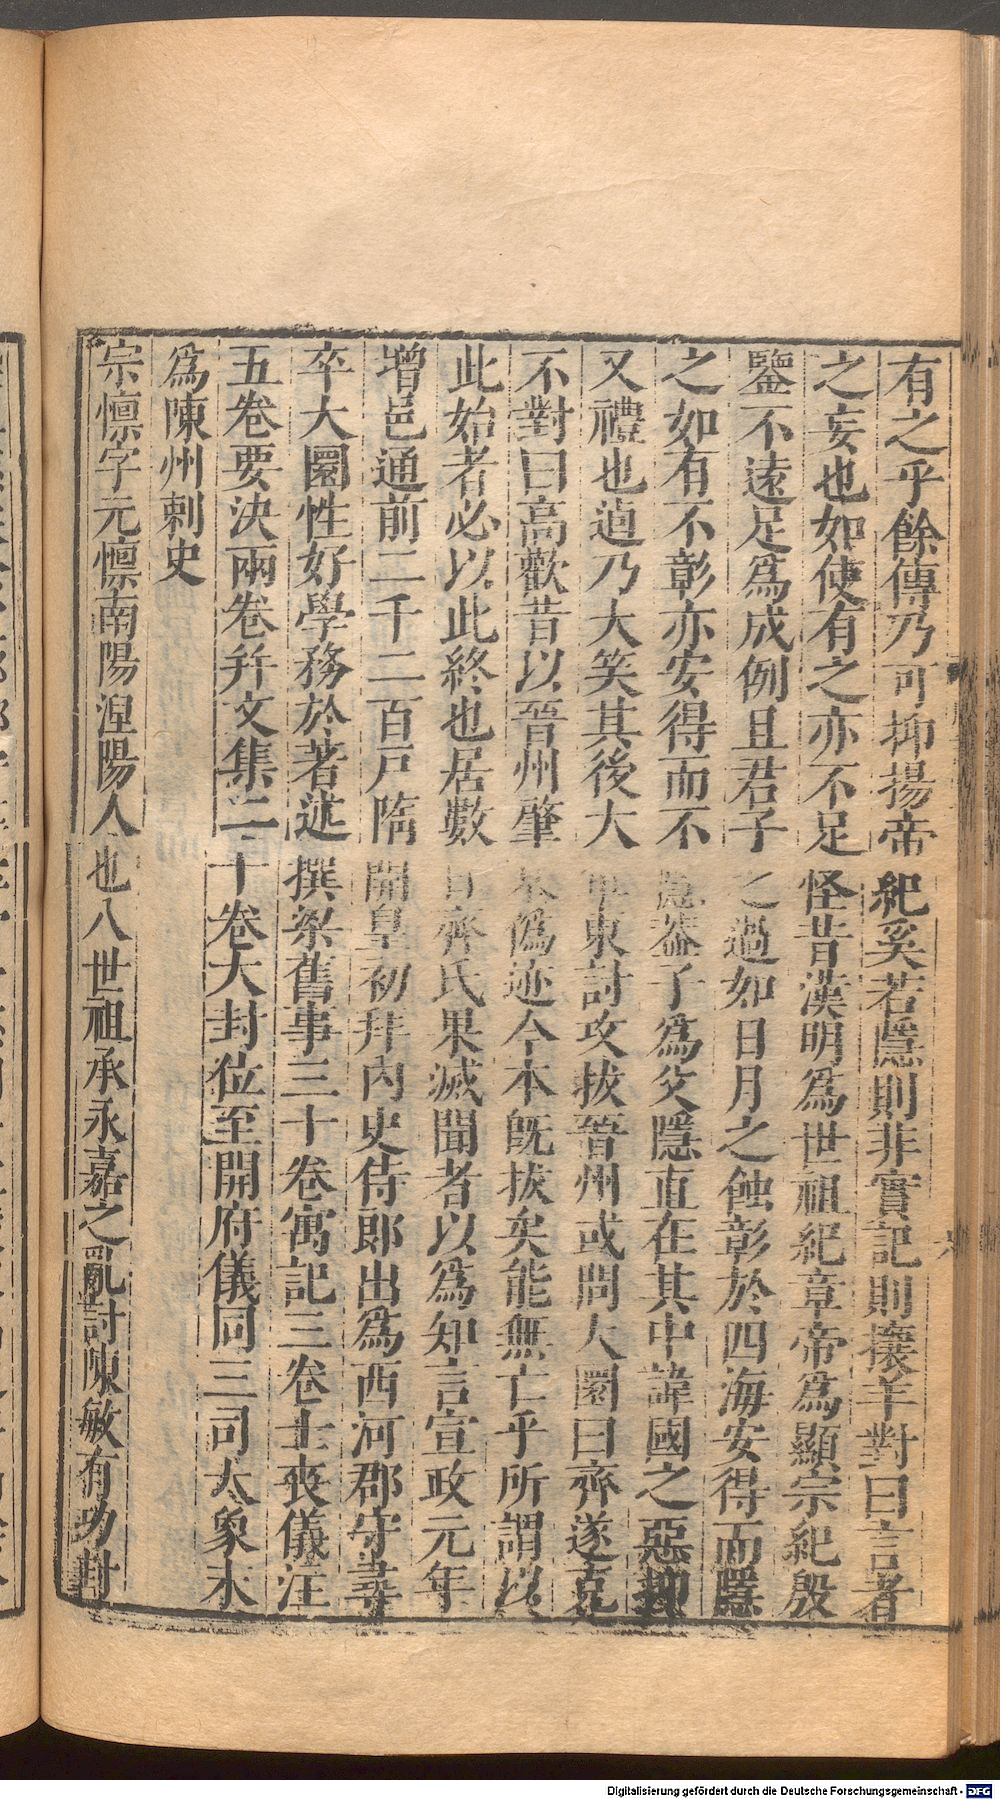 有之乎餘傳乃可抑揚帝紀奚若隱則非實記則攘羊對曰言者
之妄也如使有之亦不足怪昔漢明爲世祖紀章帝爲顯宗紀殷
鑒不遠足爲成例且君子之過如日月之蝕彰於四海安得而隱
之如有不彰亦安得而不隱葢子爲父隱直在其中諱國之惡抑
又禮也逌乃大笑其後大軍東討攻拔晉州或問大圜曰齊遂克
不對曰高歡昔以晉州肇基僞迹今本旣拔矣能無亡乎所謂以
此始者必以此終也居數日齊氏果滅聞者以爲知言宣政元年
增邑通前二千二百戶隋開皇初拜內史侍郎出爲西河郡守尋
卒大圜性好學務於著述撰梁舊事三十卷寓記三卷士喪儀注
五卷要決兩卷幷文集二十卷大封位至開府儀同三司大象末
爲陳州刺史
宗懍字元懍南陽涅陽人也八世祖承永嘉之亂討陳敏有功封
Digitalisierung gefördert durch die Deutsche Forschungsgemeinschaft - DFG